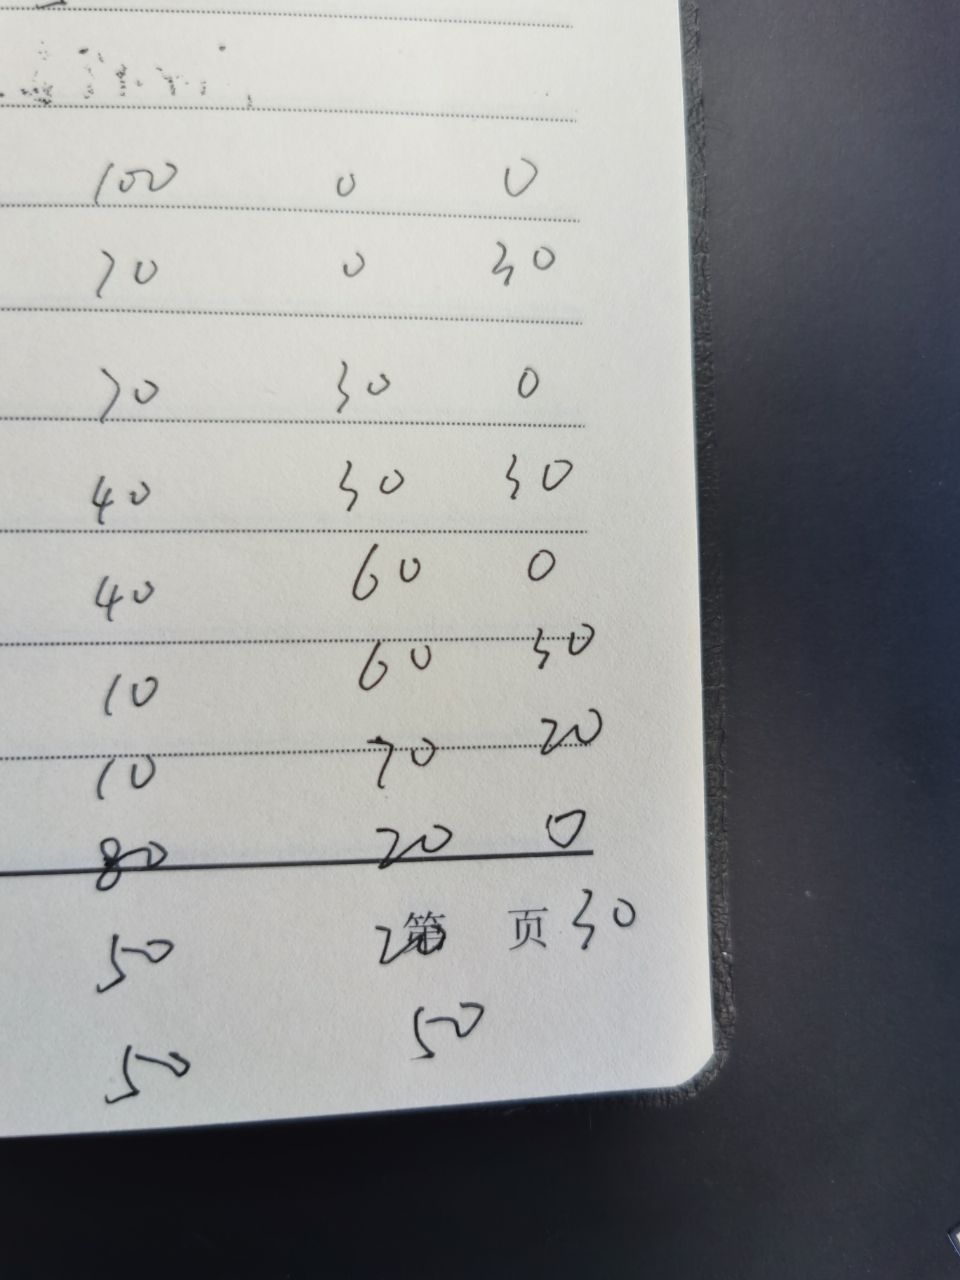 100 0 0
70 0 30
70 30 0
40 30 30
40 60 0
10 60 30
10 70 20
80 20 0
50 20 30
第 页
50 50